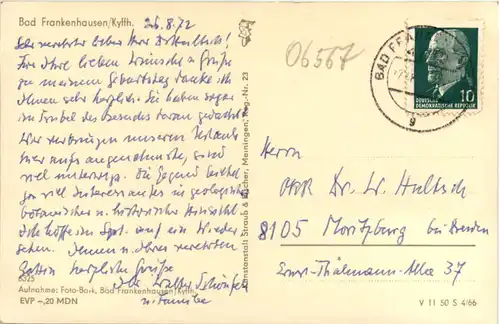 Bad Frankenhausen/Kyffh.
26.8.72
Sehr verehrter lieber Herr Dr. Hultsch!
Für Ihre lieben Wünsche u. Grüße
zu meinem Geburtstag danke ich
Ihnen sehr herzlich. Sie haben sogar
im Trubel des Besuches daran gedacht.
Wir verbringen unseren Urlaub
hier aufs angenehmste, sind
viel unterwegs. Die Gegend
viel Interessantes in geologischer
botanischer u. historischer Hinsicht.
Ich hoffe im Sept. auf ein Wieder
sehen. Ihnen u. Ihrer verehrten
Gattin herzliche Grüße
Ihr Walter Schönfel
u. Familie
6325
Aufnahme: Foto-Bark, Bad Frankenhausen/Kyffh.
EVP –,20 MDN
Kunstanstalt Straub & Fischer, Meiningen, Reg.-Nr. 23
06567
BAD FRA
g
10
DEUTSCHE
DEMOKRATISCHE REPUBLIK
Herrn
Dr. W. Hultsch
8105 Moritzburg bei Dresden
Ernst-Thälmann-Allee 37
V 11 50 S 4/66